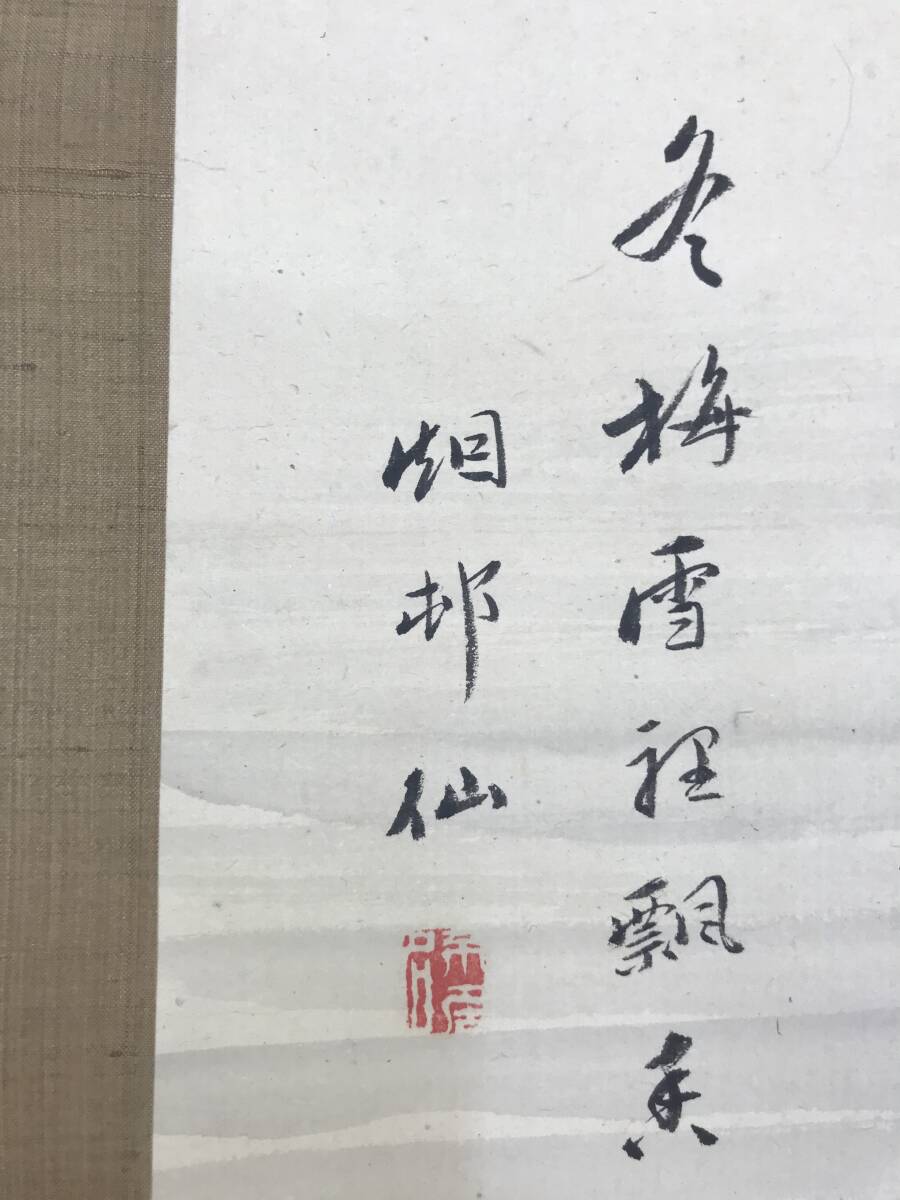 冬梅雪裡飄香
烟邨仙